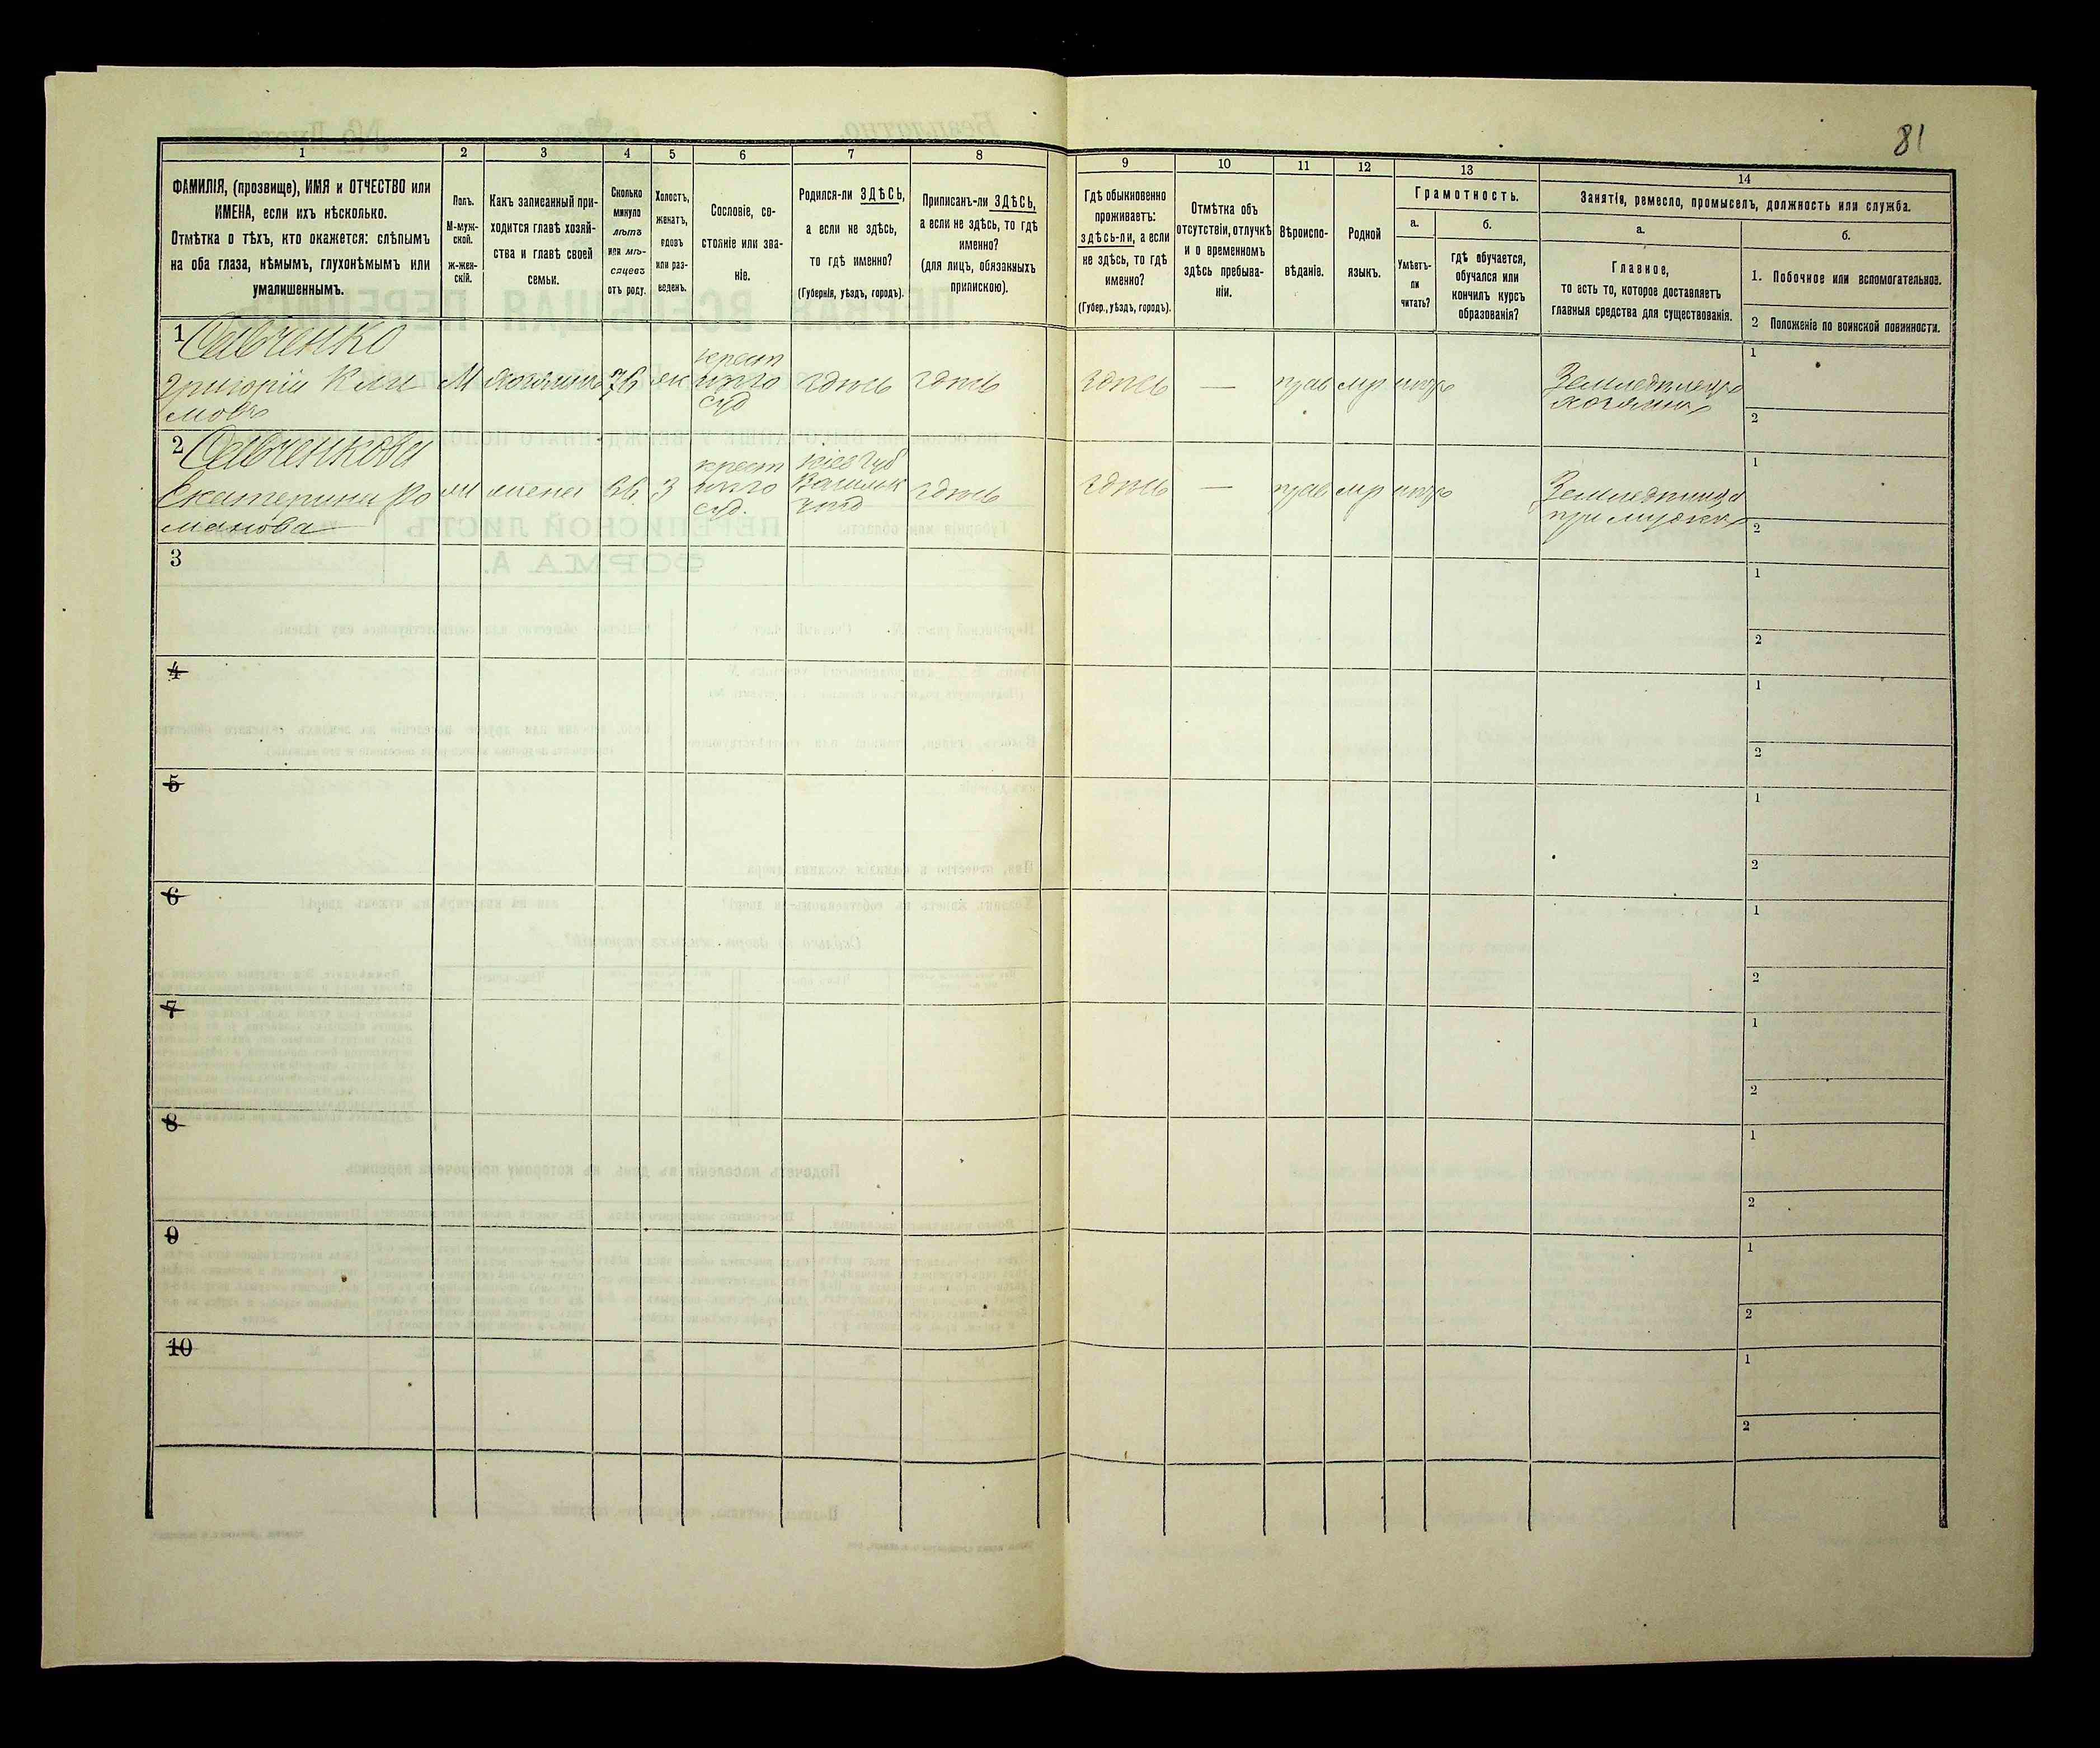 81
1 2 3 4 5 6 7 8 9 10 11 12 13 14
ФАМИЛІЯ, (прозвище), ИМЯ и ОТЧЕСТВО или
ИМЕНА, если ихъ нѣсколько.
Отмѣтка о тѣхъ, кто окажется: слѣпымъ
на оба глаза, нѣмымъ, глухонѣмымъ или
умалишеннымъ.
Полъ.
М-муж-
ской.
ж-жен-
скій.
Какъ записанный при-
ходится главѣ хозяй-
ства и главѣ своей
семьи.
Сколько
минуло
лѣтъ
или мѣ-
сяцевъ
отъ роду.
Холостъ,
женатъ,
вдовъ
или раз-
веденъ.
Сословіе, со-
стояніе или зва-
ніе.
Родился-ли ЗДѢСЬ,
а если не здѣсь,
то гдѣ именно?
(Губернія, уѣздъ, городъ).
Приписанъ-ли ЗДѢСЬ,
а если не здѣсь, то гдѣ
именно?
(для лицъ, обязанныхъ
припискою).
Гдѣ обыкновенно
проживаетъ:
здѣсь-ли, а если
не здѣсь, то гдѣ
именно?
(Губер., уѣздъ, городъ).
Отмѣтка объ
отсутствіи, отлучкѣ
и о временномъ
здѣсь пребыва-
ніи.
Вѣроиспо-
вѣданіе.
Родной
языкъ.
Грамотность.
а.
Умѣетъ-
ли
читать?
б.
гдѣ обучается,
обучался или
кончилъ курсъ
образованія?
Занятія, ремесло, промыселъ, должность или служба.
а.
Главное,
то есть то, которое доставляетъ
главныя средства для существованія.
б.
1. Побочное или вспомогательное.
2 Положеніе по воинской повинности.
1 Савченко
Григорій Кли
мовъ
М хозяинъ 76
крест
здѣсь здѣсь здѣсь — прав мр нѣтъ
Земледѣлецъ
хозяинъ
1
2
2 Савченкова
Екатерина Ро
манова
жена 66 З
крест
Кіев губ
Васильк
уѣзд
здѣсь здѣсь — прав мр нѣтъ
при мужѣ
1
2
3
1
2
4
1
2
5
1
2
6
1
2
7
1
2
8
1
2
9
1
2
10
1
2